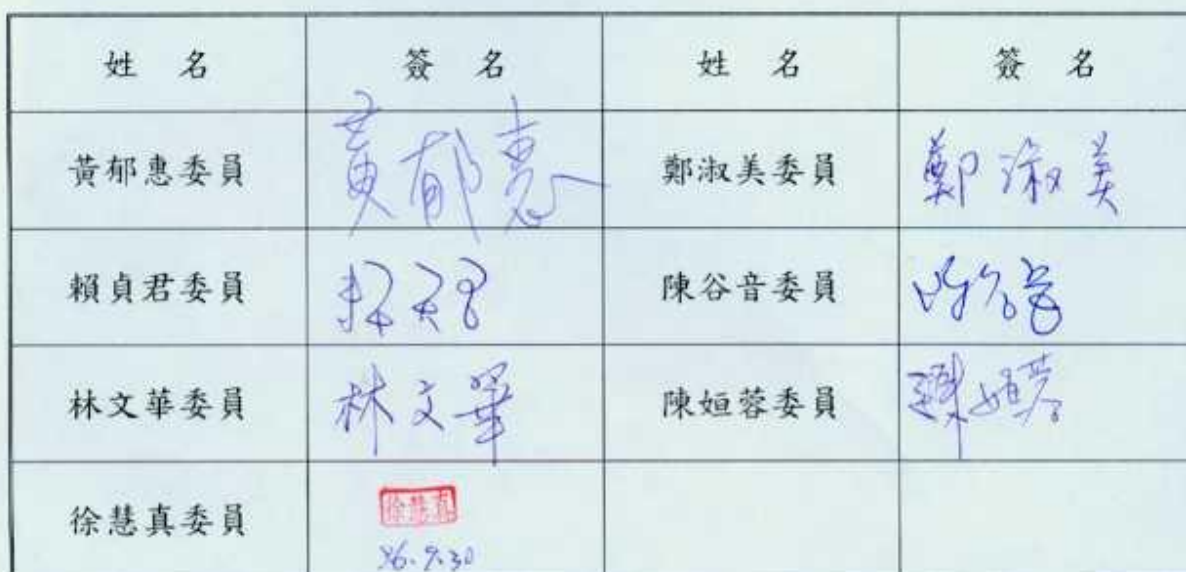 姓 名 簽 名 姓 名 簽 名
黃郁惠委員 黃郁惠 鄭淑美委員 鄭淑美
賴貞君委員 陳谷音委員
林文華委員 林文華 陳姮蓉委員 陳姮蓉
徐慧真委員 徐慧真